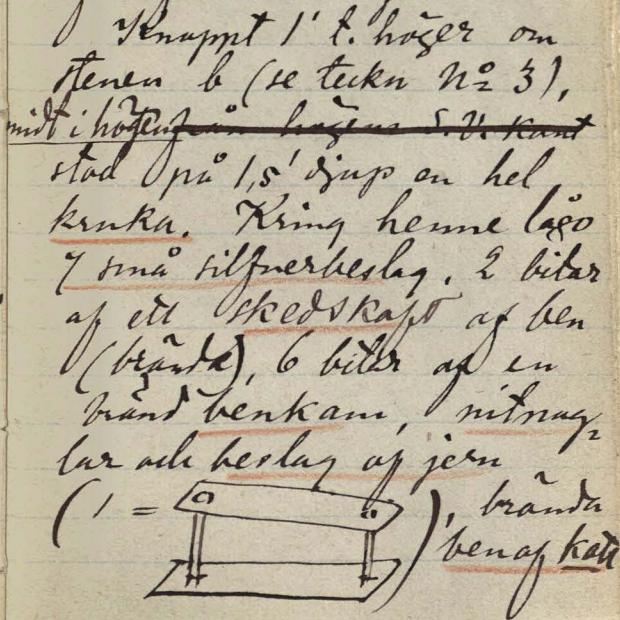 Knappt 1' t. höger om
stenen b (se teckn No 3),
midt i högen från högens S.V. kant
stod på 1,5' djup en hel
kruka. Kring henne lågo
7 små silfverbeslag, 2 bitar
af ett skedskaft af ben
(brända), 6 bitar af en
bränd benkam, nitnag-
lar och beslag af jern
(1 = ), brända
ben af katt